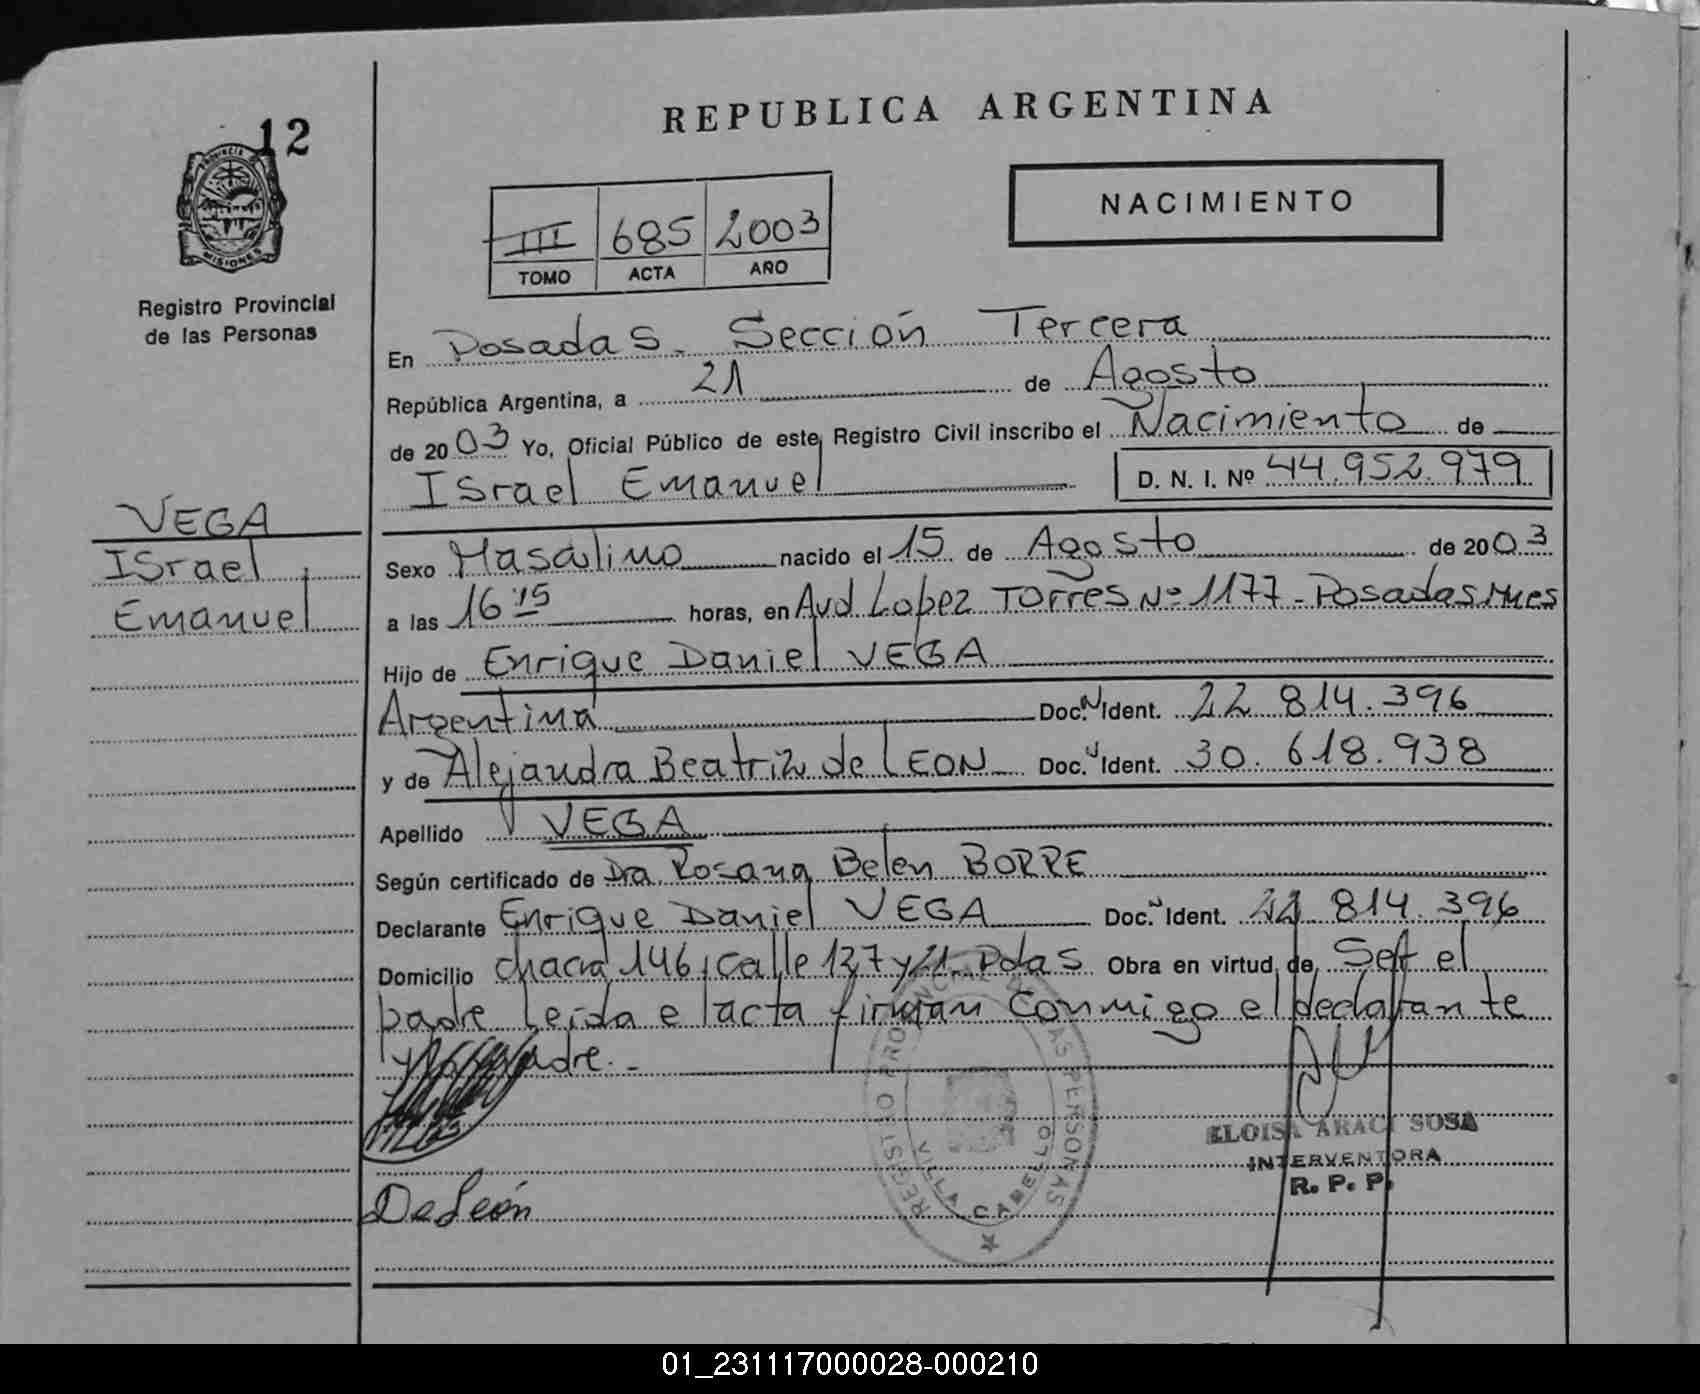 12
REPUBLICA ARGENTINA
PROVINCIA
MISIONES
Registro Provincial
de las Personas
III 685 2003
TOMO ACTA AÑO
NACIMIENTO
En Posadas. Sección Tercera
República Argentina, a 21 de Agosto
de 2003 Yo, Oficial Público de este Registro Civil inscribo el Nacimiento de
Israel Emanuel D. N. I. Nº 44.952.979
VEGA
Israel
Emanuel
Sexo Masculino nacido el 15 de Agosto de 2003
a las 16:15 horas, en Avd Lopez Torres Nº 1177 - Posadas Mnes
Hijo de Enrique Daniel VEGA
Argentina Doc. N Ident. 22 814.396
y de Alejandra Beatriz de LEON Doc. N Ident. 30. 618.938
Apellido VEGA
Según certificado de Dra Rosana Belen BORRE
Declarante Enrique Daniel VEGA Doc. N Ident. 22 814.396
Domicilio chacra 146, calle 127 y 21. Pdas Obra en virtud de Ser el
padre Leida el acta firman conmigo el declarante
y la madre.-
REGISTRO PROVINCIAL DE LAS PERSONAS
VILLA CABELLO
ELOISA ARACI SOSA
INTERVENTORA
R. P. P.
De León
01_231117000028-000210